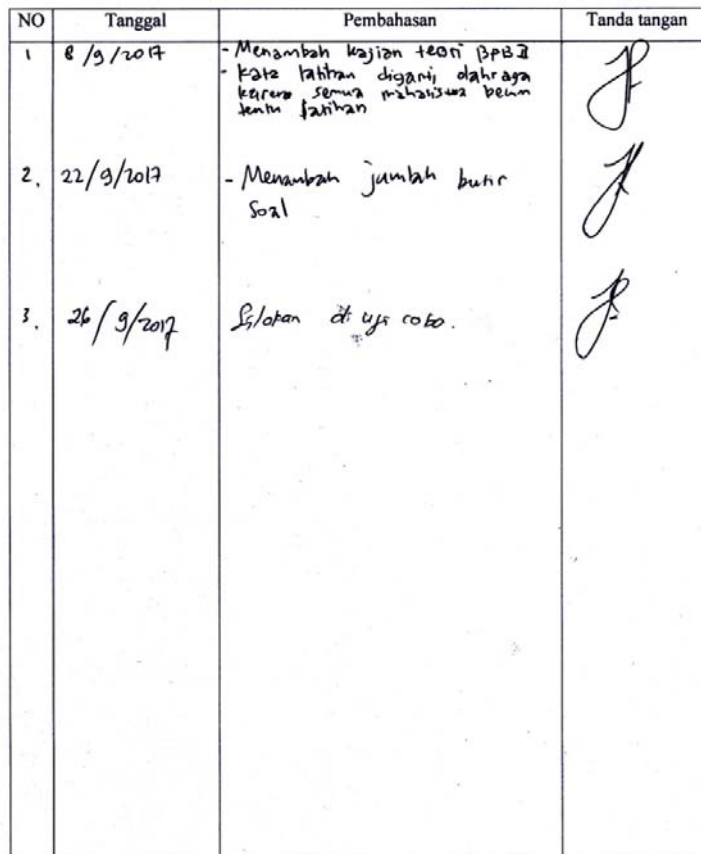 NO Tanggal Pembahasan Tanda tangan
1 8/9/2017 - Menambah kajian teori BAB II
- Kata latihan diganti olahraga
karena semua mahasiswa belum
tentu latihan
2. 22/9/2017 - Menambah jumlah butir
Soal
3. 26/9/2017 Silakan di uji coba.